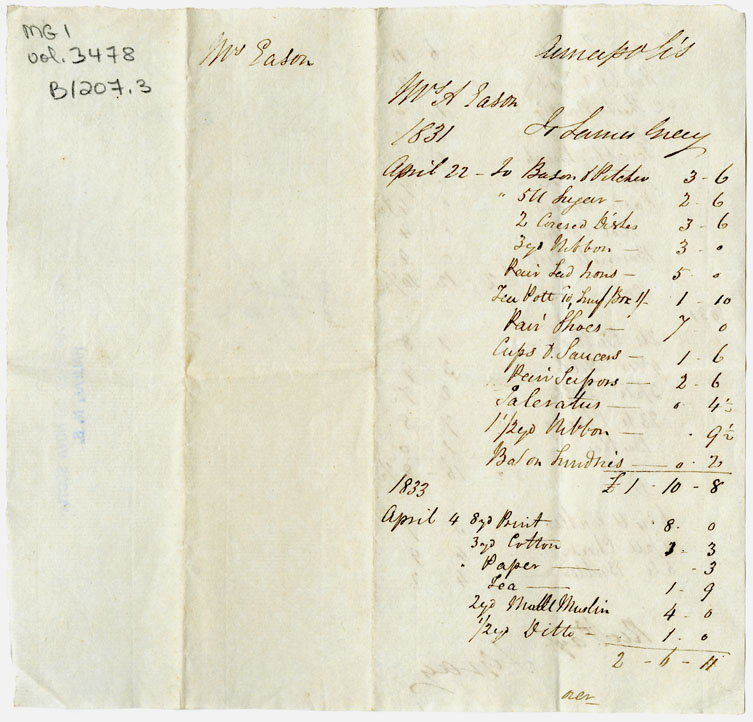 MG1
vol. 3478
B1207.3
Mrs Eason
Annapolis
Mrs A Eason
1831 To James Gray
April 22 - To Bason & Pitcher 3 - 6
" 5 ll Sugar - 2 - 6
2 Covered Dishes 3 - 6
3 yd Ribbon - 3 - 0
Pair Sad Irons - 5 - 0
Tea Pott Snuf Box 1/- 1 - 10
Pair Shoes - 7 - 0
Cups & Saucers - 1 - 6
Pair Scissors - 2 - 6
Saleratus - 0 - 4½
1 1/2 yd Ribbon - - 9½
Bal on Sundries - 0 - 2
£1 - 10 - 8
1833
April 4 8 yd Print - 8 - 0
3 yd Cotton 3 - 3
" Paper - - 3
Tea - 1 - 9
2 yd Mull Muslin 4 - 0
1/2 yd Ditto - 1 - 0
2 - 6 - 11